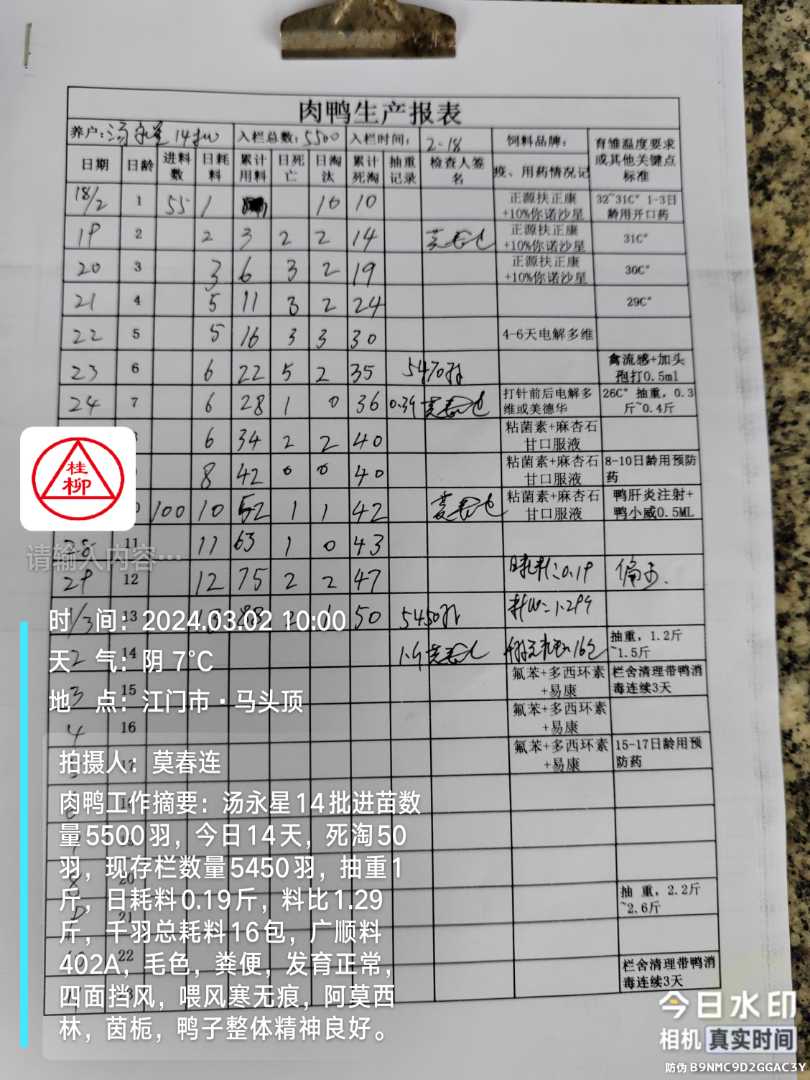 肉鸭生产报表
养户: 汤永星 14批 入栏总数: 5500 入栏时间: 2-18 饲料品牌: 育雏温度要求或其他关键点标准
日期 日龄 进料数 日耗料 累计用料 日死亡 日淘汰 累计死淘 抽重记录 检查人签名 疫、用药情况记
18/2 1 55 1 10 10 正源扶正康+10%你诺沙星 32~31C° 1-3日龄用开口药
19 2 2 3 2 2 14 正源扶正康+10%你诺沙星 31C°
20 3 3 6 3 2 19 正源扶正康+10%你诺沙星 30C°
21 4 5 11 3 2 24 29C°
22 5 5 16 3 3 30 4-6天电解多维
23 6 6 22 5 2 35 5470羽 禽流感+加头孢打0.5ml
24 7 6 28 1 0 36 0.39 打针前后电解多维或美德华 26C° 抽重,0.3斤~0.4斤
6 34 2 2 40 粘菌素+麻杏石甘口服液
8 42 0 0 40 粘菌素+麻杏石甘口服液 8-10日龄用预防药
100 10 52 1 1 42 粘菌素+麻杏石甘口服液 鸭肝炎注射+鸭小威0.5ML
28 11 11 63 1 0 43
29 12 12 75 2 2 47 日耗料:0.19
1/3 13 88 2 1 50 5450羽 料比:1.299
2 14 抽重,1.2斤~1.5斤
3 15 氟苯+多西环素+易康 栏舍清理带鸭消毒连续3天
4 16 氟苯+多西环素+易康
氟苯+多西环素+易康 15-17日龄用预防药
20 抽 重,2.2斤~2.6斤
21
22 栏舍清理带鸭消毒连续3天
桂柳
请输入内容…
时 间: 2024.03.02 10:00
天 气: 阴 7℃
地 点: 江门市·马头顶
拍摄人: 莫春连
肉鸭工作摘要: 汤永星14批进苗数
量5500羽, 今日14天, 死淘50
羽, 现存栏数量5450羽, 抽重1
斤, 日耗料0.19斤, 料比1.29
斤, 千羽总耗料16包, 广顺料
402A, 毛色, 粪便, 发育正常,
四面挡风, 喂风寒无痕, 阿莫西
林, 茵栀, 鸭子整体精神良好。
今日水印
相机 真实时间
防伪 B9NMC9D2GGAC3Y